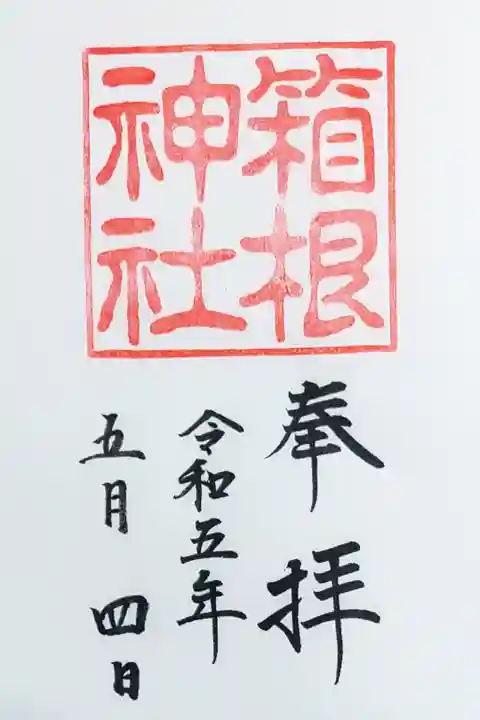 箱根
神社
奉拝
令和五年
五月 四日